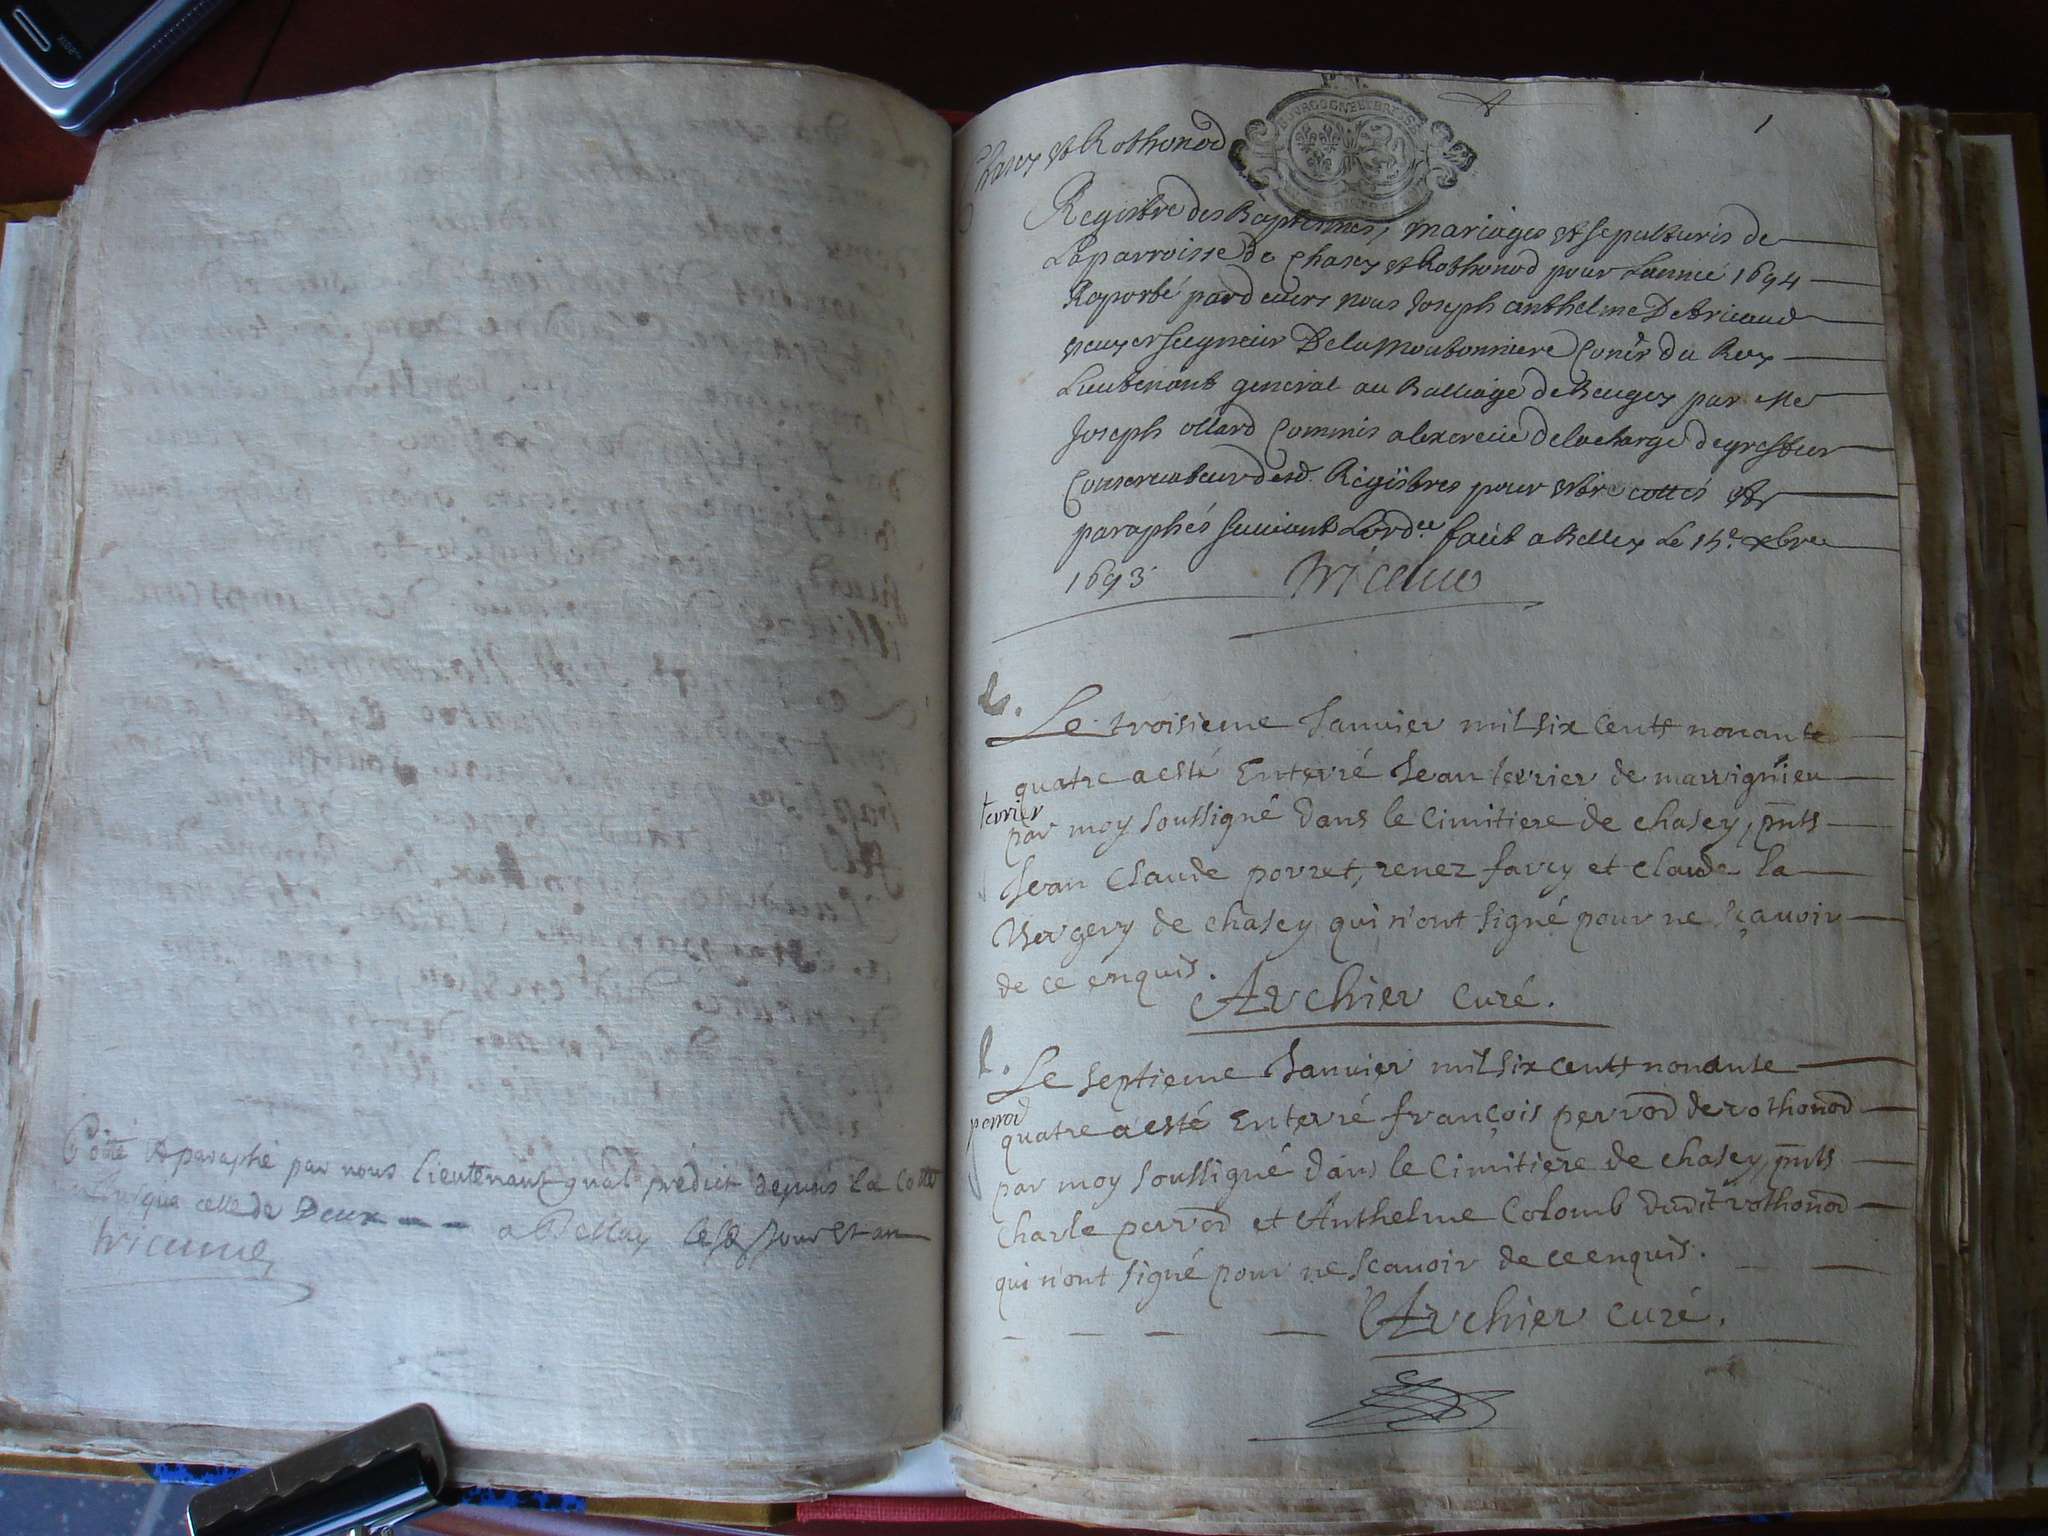 Cotté & paraphé par nous lieutenant gnāl predict depuis la cotte
Jusqua celle de Deux a Belley jour et an
Chasey et Rothonod
1
BOURGOGNE ET BRESSE
Registre des Baptesmes, mariages et sepultures de
La parroisse de Chasey et Rothonod pour Lannée 1694
Raporté pardevers nous Joseph anthelme Detricaud
Seigneur De la Moubonniere Conēr du Roy
Lieutenant general au Balliage de Beugey par Me
Joseph ollard Commis a lexercice de la charge de greffier
Conservateur desd. Registres pour estre cottés et
paraphés suivant Lordce. faict a Belley Le 15e. xbre
1693
Le troisieme Janvier mil six centz nonante
quatre a esté Enterré Jean terrier de marrignieu
terrier
par moy soussigné dans le Cimitiere de chasey, pn̄ts
Jean Claude porret, renez farcy et claude la
Vergery de chasey qui n'ont signé pour ne sçavoir
de ce enquis.
Archier curé.
Le septieme Janvier mil six centz nonante
perrod
quatre a esté Enterré françois perrod de rothonod
par moy soussigné dans le Cimitiere de chasey, pn̄ts
Charle perrod et Anthelme Colomb dudit rothonod
qui n'ont signé pour ne scavoir de ce enquis.
Archier curé.